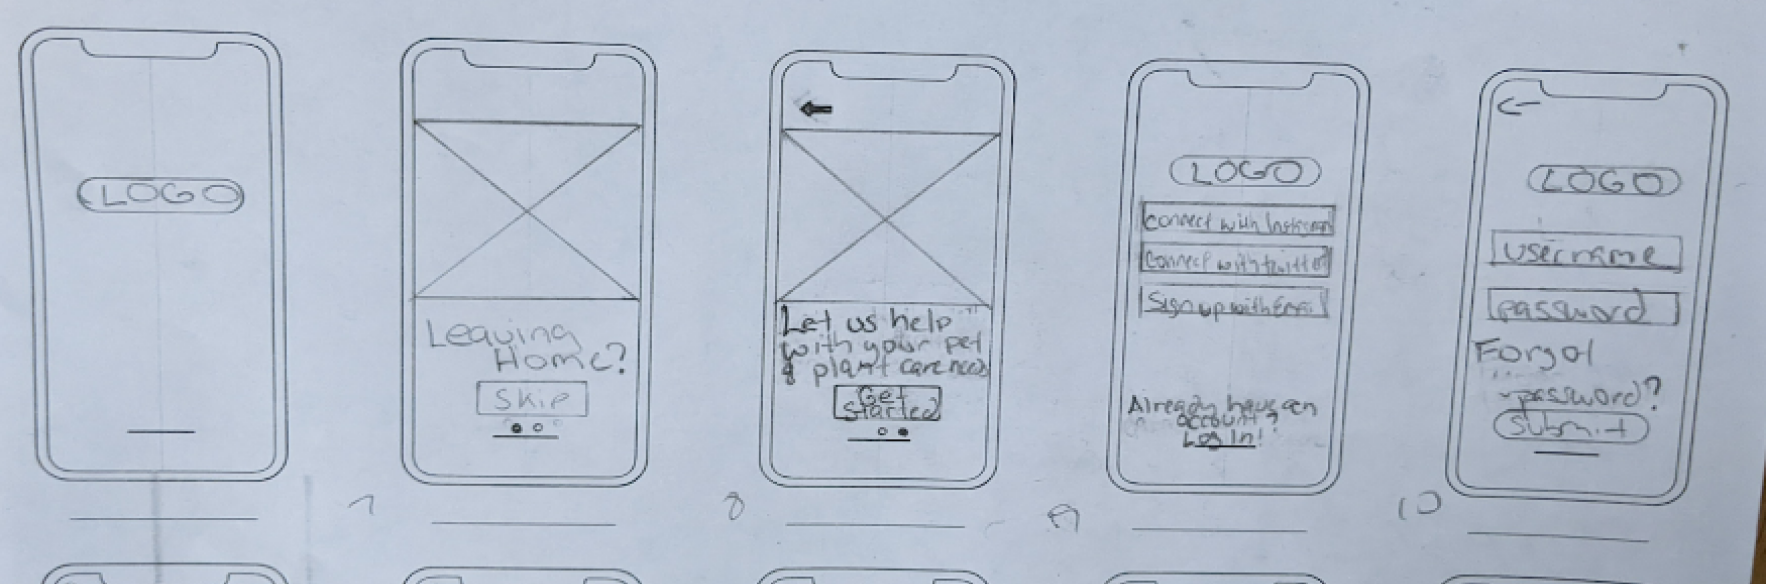 LOGO
Leaving
Home?
Skip
Let us help
with your pet
& plant care needs
Get
Started
LOGO
connect with Instagram
connect with twitter
Sign up with Email
Already have an
account?
Log In!
LOGO
username
password
Forgot
password?
Submit
7
8
9
10